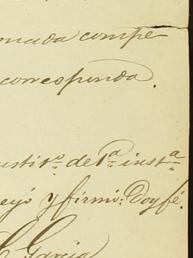 mada compe
corresponda.
justis. de 1ª instª
leyó y firmó: Doy fé.
García